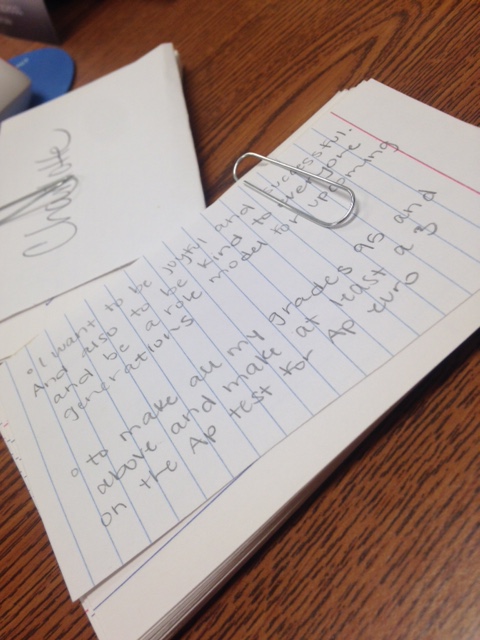 Charlotte
° I want to be joyful and successful.
And also to be kind to everyone
and be a role model for upcoming
generations
° to make all my grades 95 and
above and make at least a 3
on the AP test for AP euro